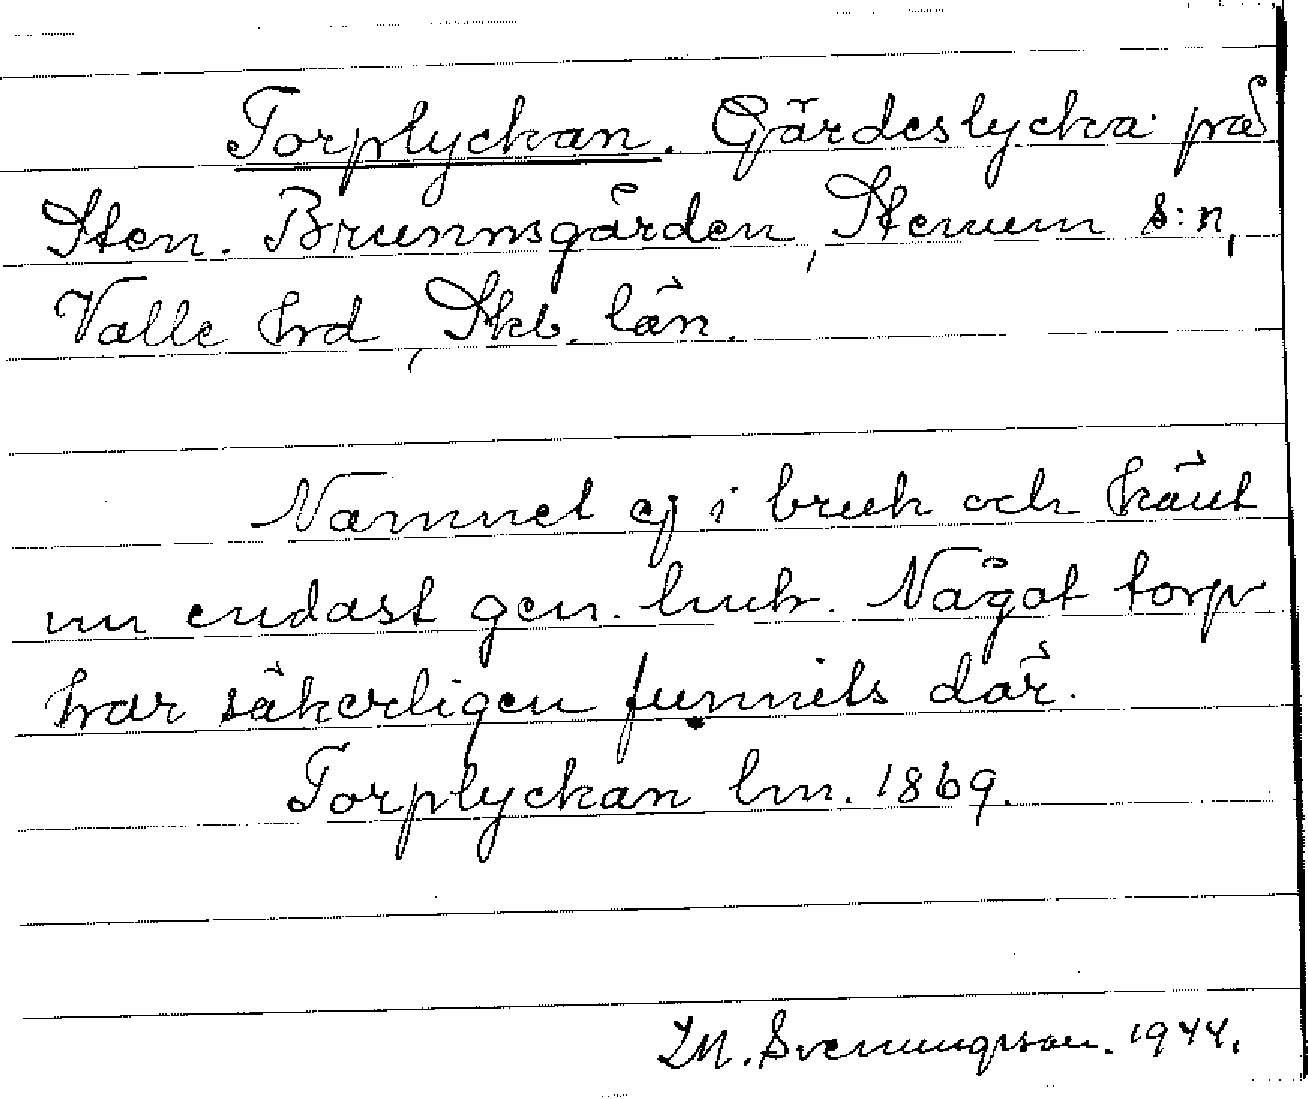 Torplyckan. Gärdeslycka på
Sten. Brunnsgården, Stenum s:n,
Valle hrd, Skb. län.
Namnet ej i bruk och känt
nu endast gen. lmk. Något torp
har säkerligen funnits där.
Torplyckan lm. 1869.
M. Svenungsson. 1944.